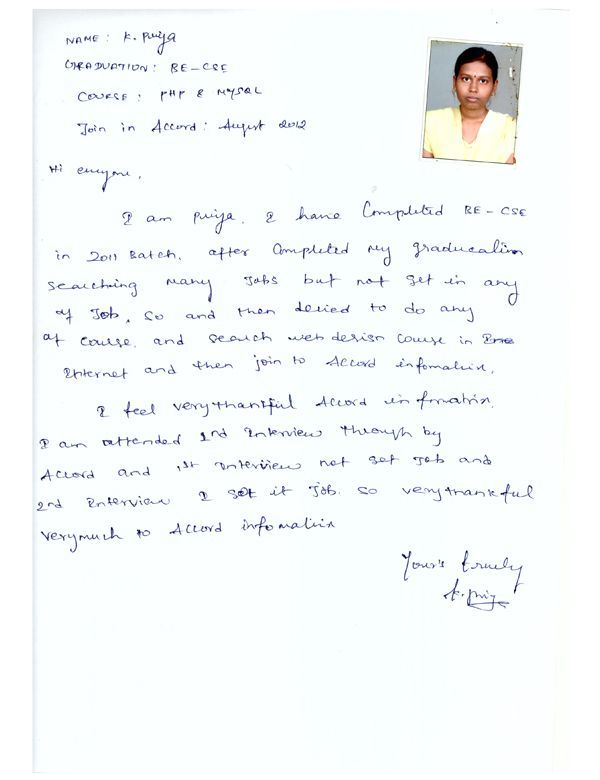 NAME : K. Priya
GRADUATION : BE-CSE
COURSE : PHP & MYSQL
Join in Accord : August 2012
Hi everyone,
I am priya. I have Completed BE - CSE
in 2011 Batch. after Completed my graducation
searching many Jobs but not get in any
of Job. So and then decied to do any
of course. and search web design Course in
Internet and then join to Accord infomatrix.
I feel verythankful Accord infomatrix.
I am attended 2nd Interview through by
Accord and 1st Interview not get Job and
2nd Interview I get it Job. so verythankful
verymuch to Accord infomatrix
Your's truely
K. Priya